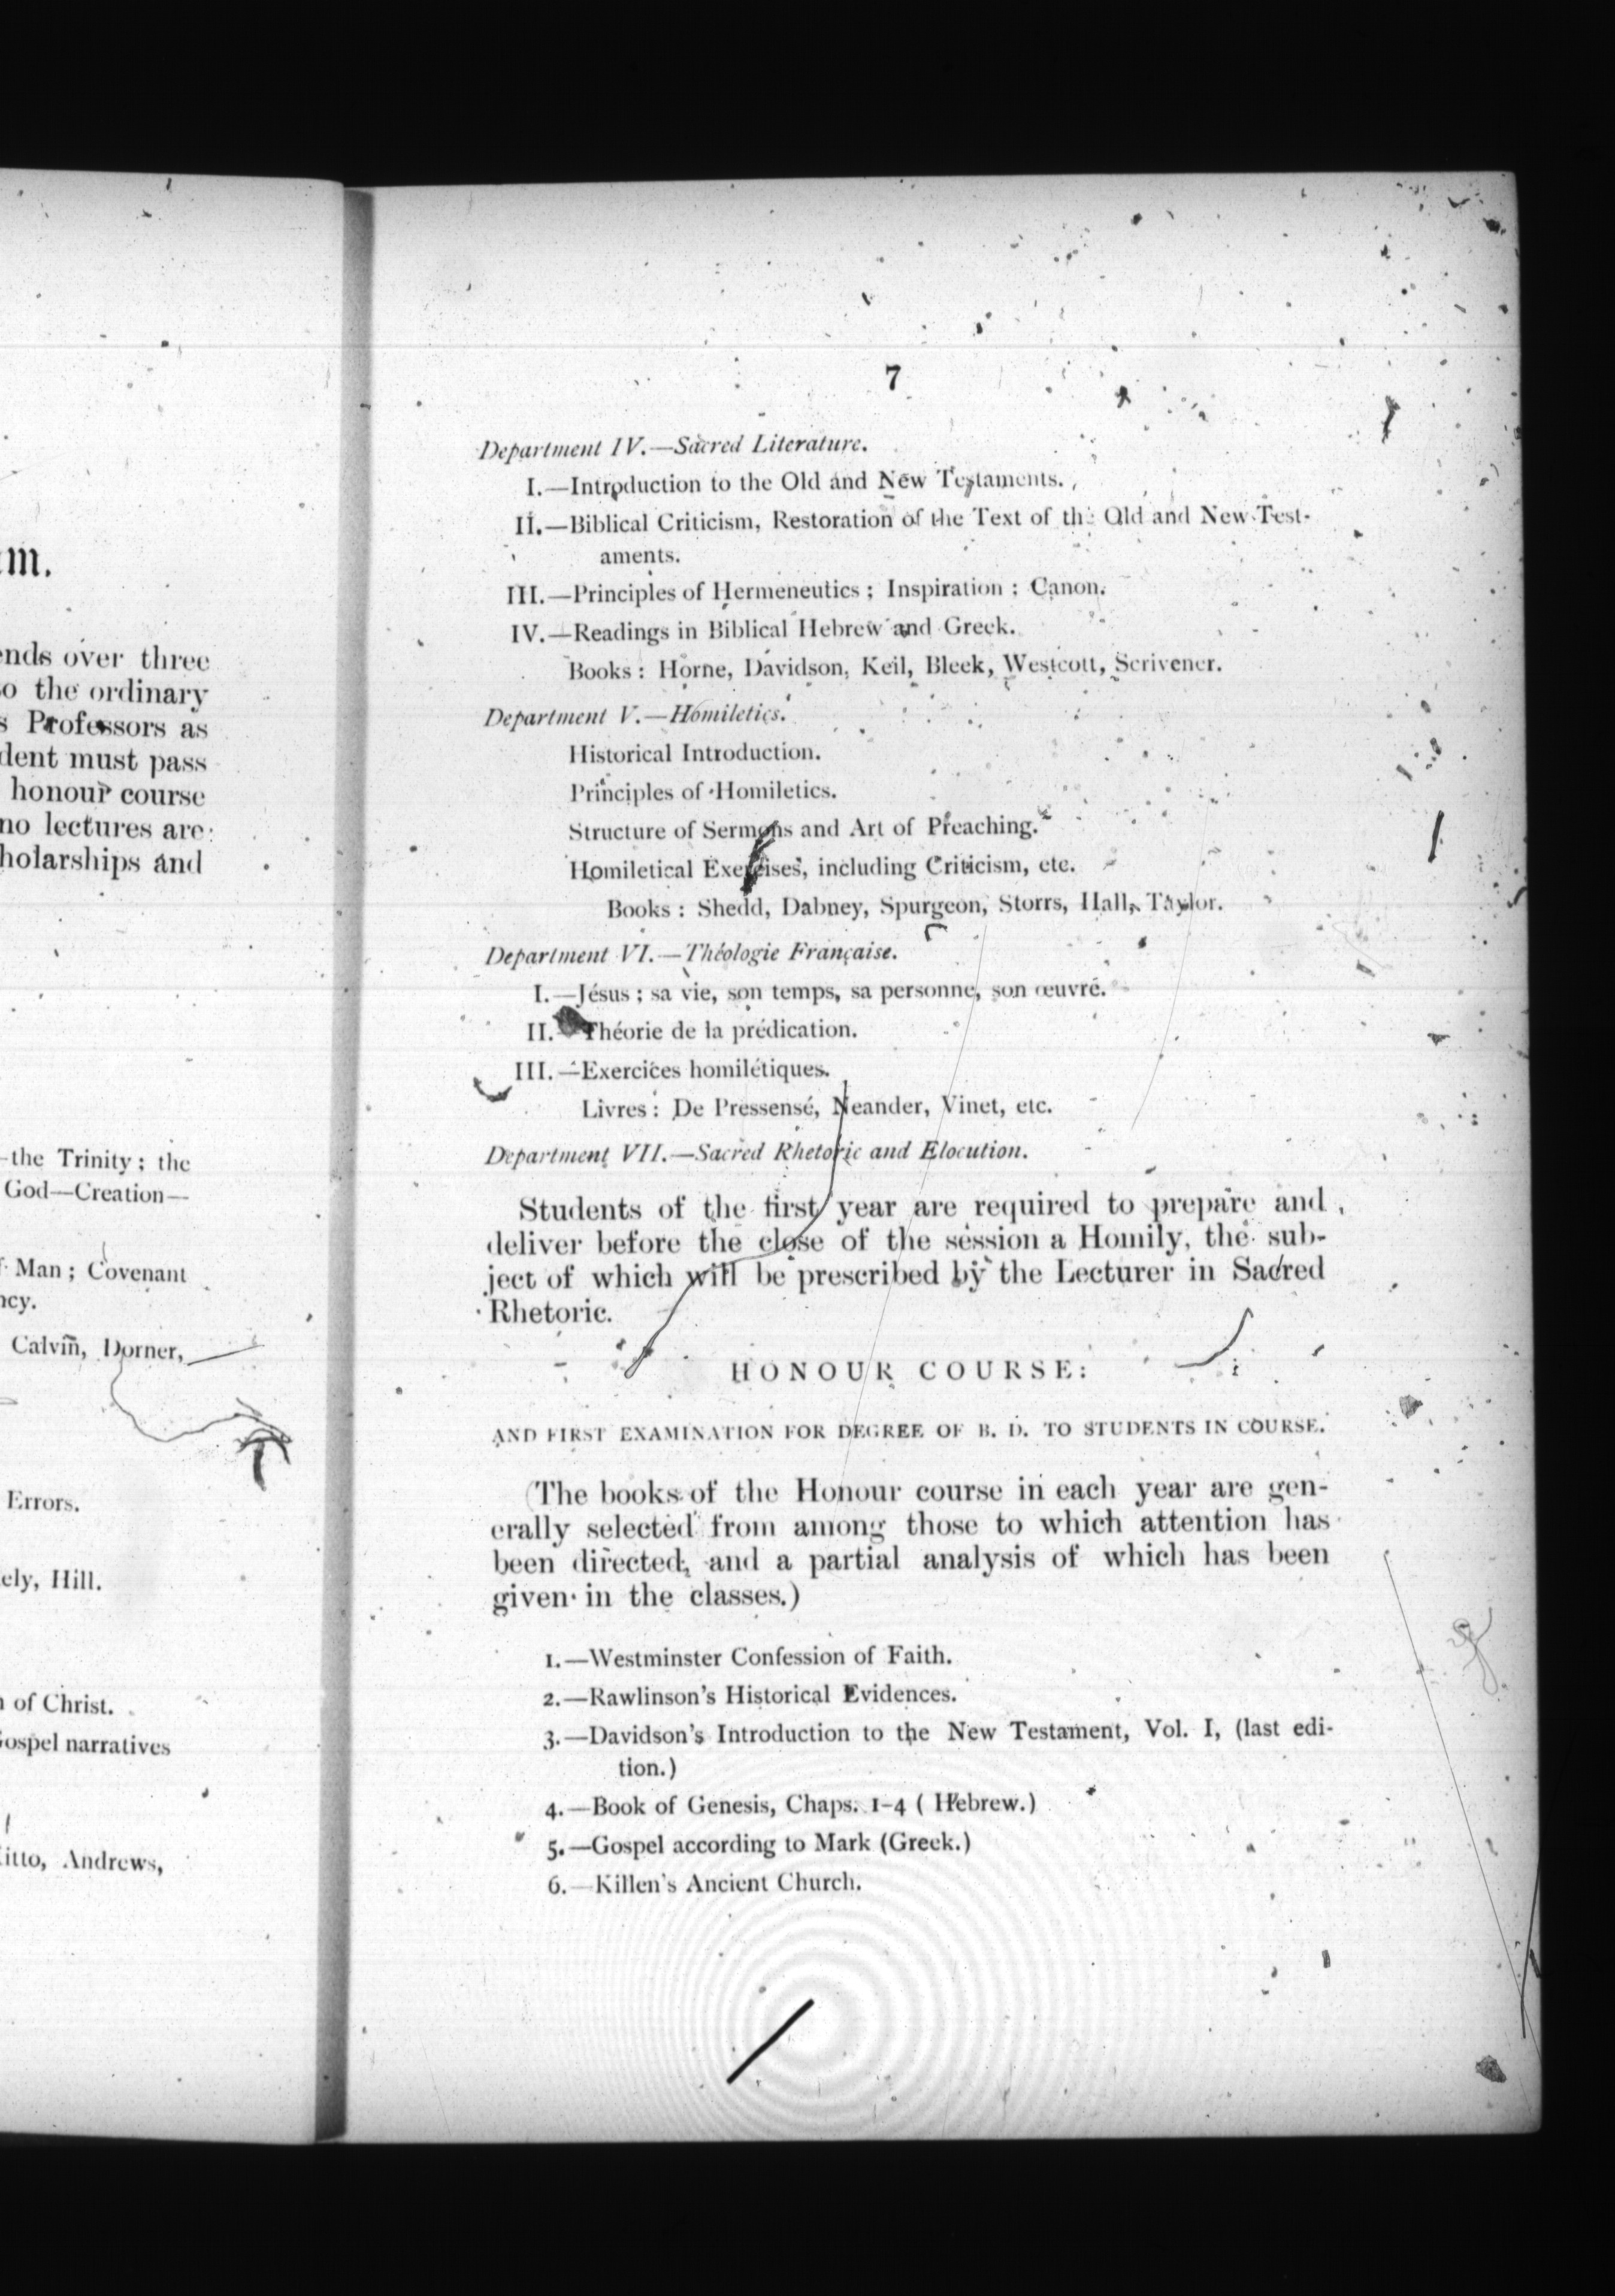 m.
ends over three
o the ordinary
s Professors as
dent must pass
honour course
no lectures are
holarships and
—the Trinity; the
God—Creation—
Man; Covenant
ncy.
Calvin, Dorner,
Errors.
ely, Hill.
of Christ.
ospel narratives
itto, Andrews,
7
Department IV.—Sacred Literature.
I.—Introduction to the Old and New Testaments.
II.—Biblical Criticism, Restoration of the Text of the Old and New Test-
aments.
III.—Principles of Hermeneutics; Inspiration; Canon.
IV.—Readings in Biblical Hebrew and Greek.
Books: Horne, Davidson, Keil, Bleek, Westcott, Scrivener.
Department V.—Homiletics.
Historical Introduction.
Principles of Homiletics.
Structure of Sermons and Art of Preaching.
Homiletical Exercises, including Criticism, etc.
Books: Shedd, Dabney, Spurgeon, Storrs, Hall, Taylor.
Department VI.—Théologie Française.
I.—Jésus; sa vie, son temps, sa personne, son œuvre.
II.—Théorie de la prédication.
III.—Exercices homilétiques.
Livres: De Pressensé, Neander, Vinet, etc.
Department VII.—Sacred Rhetoric and Elocution.
Students of the first year are required to prepare and
deliver before the close of the session a Homily, the sub-
ject of which will be prescribed by the Lecturer in Sacred
Rhetoric.
HONOUR COURSE:
AND FIRST EXAMINATION FOR DEGREE OF B. D. TO STUDENTS IN COURSE.
(The books of the Honour course in each year are gen-
erally selected from among those to which attention has
been directed, and a partial analysis of which has been
given in the classes.)
1.—Westminster Confession of Faith.
2.—Rawlinson's Historical Evidences.
3.—Davidson's Introduction to the New Testament, Vol. I, (last edi-
tion.)
4.—Book of Genesis, Chaps. 1-4 (Hebrew.)
5.—Gospel according to Mark (Greek.)
6.—Killen's Ancient Church.